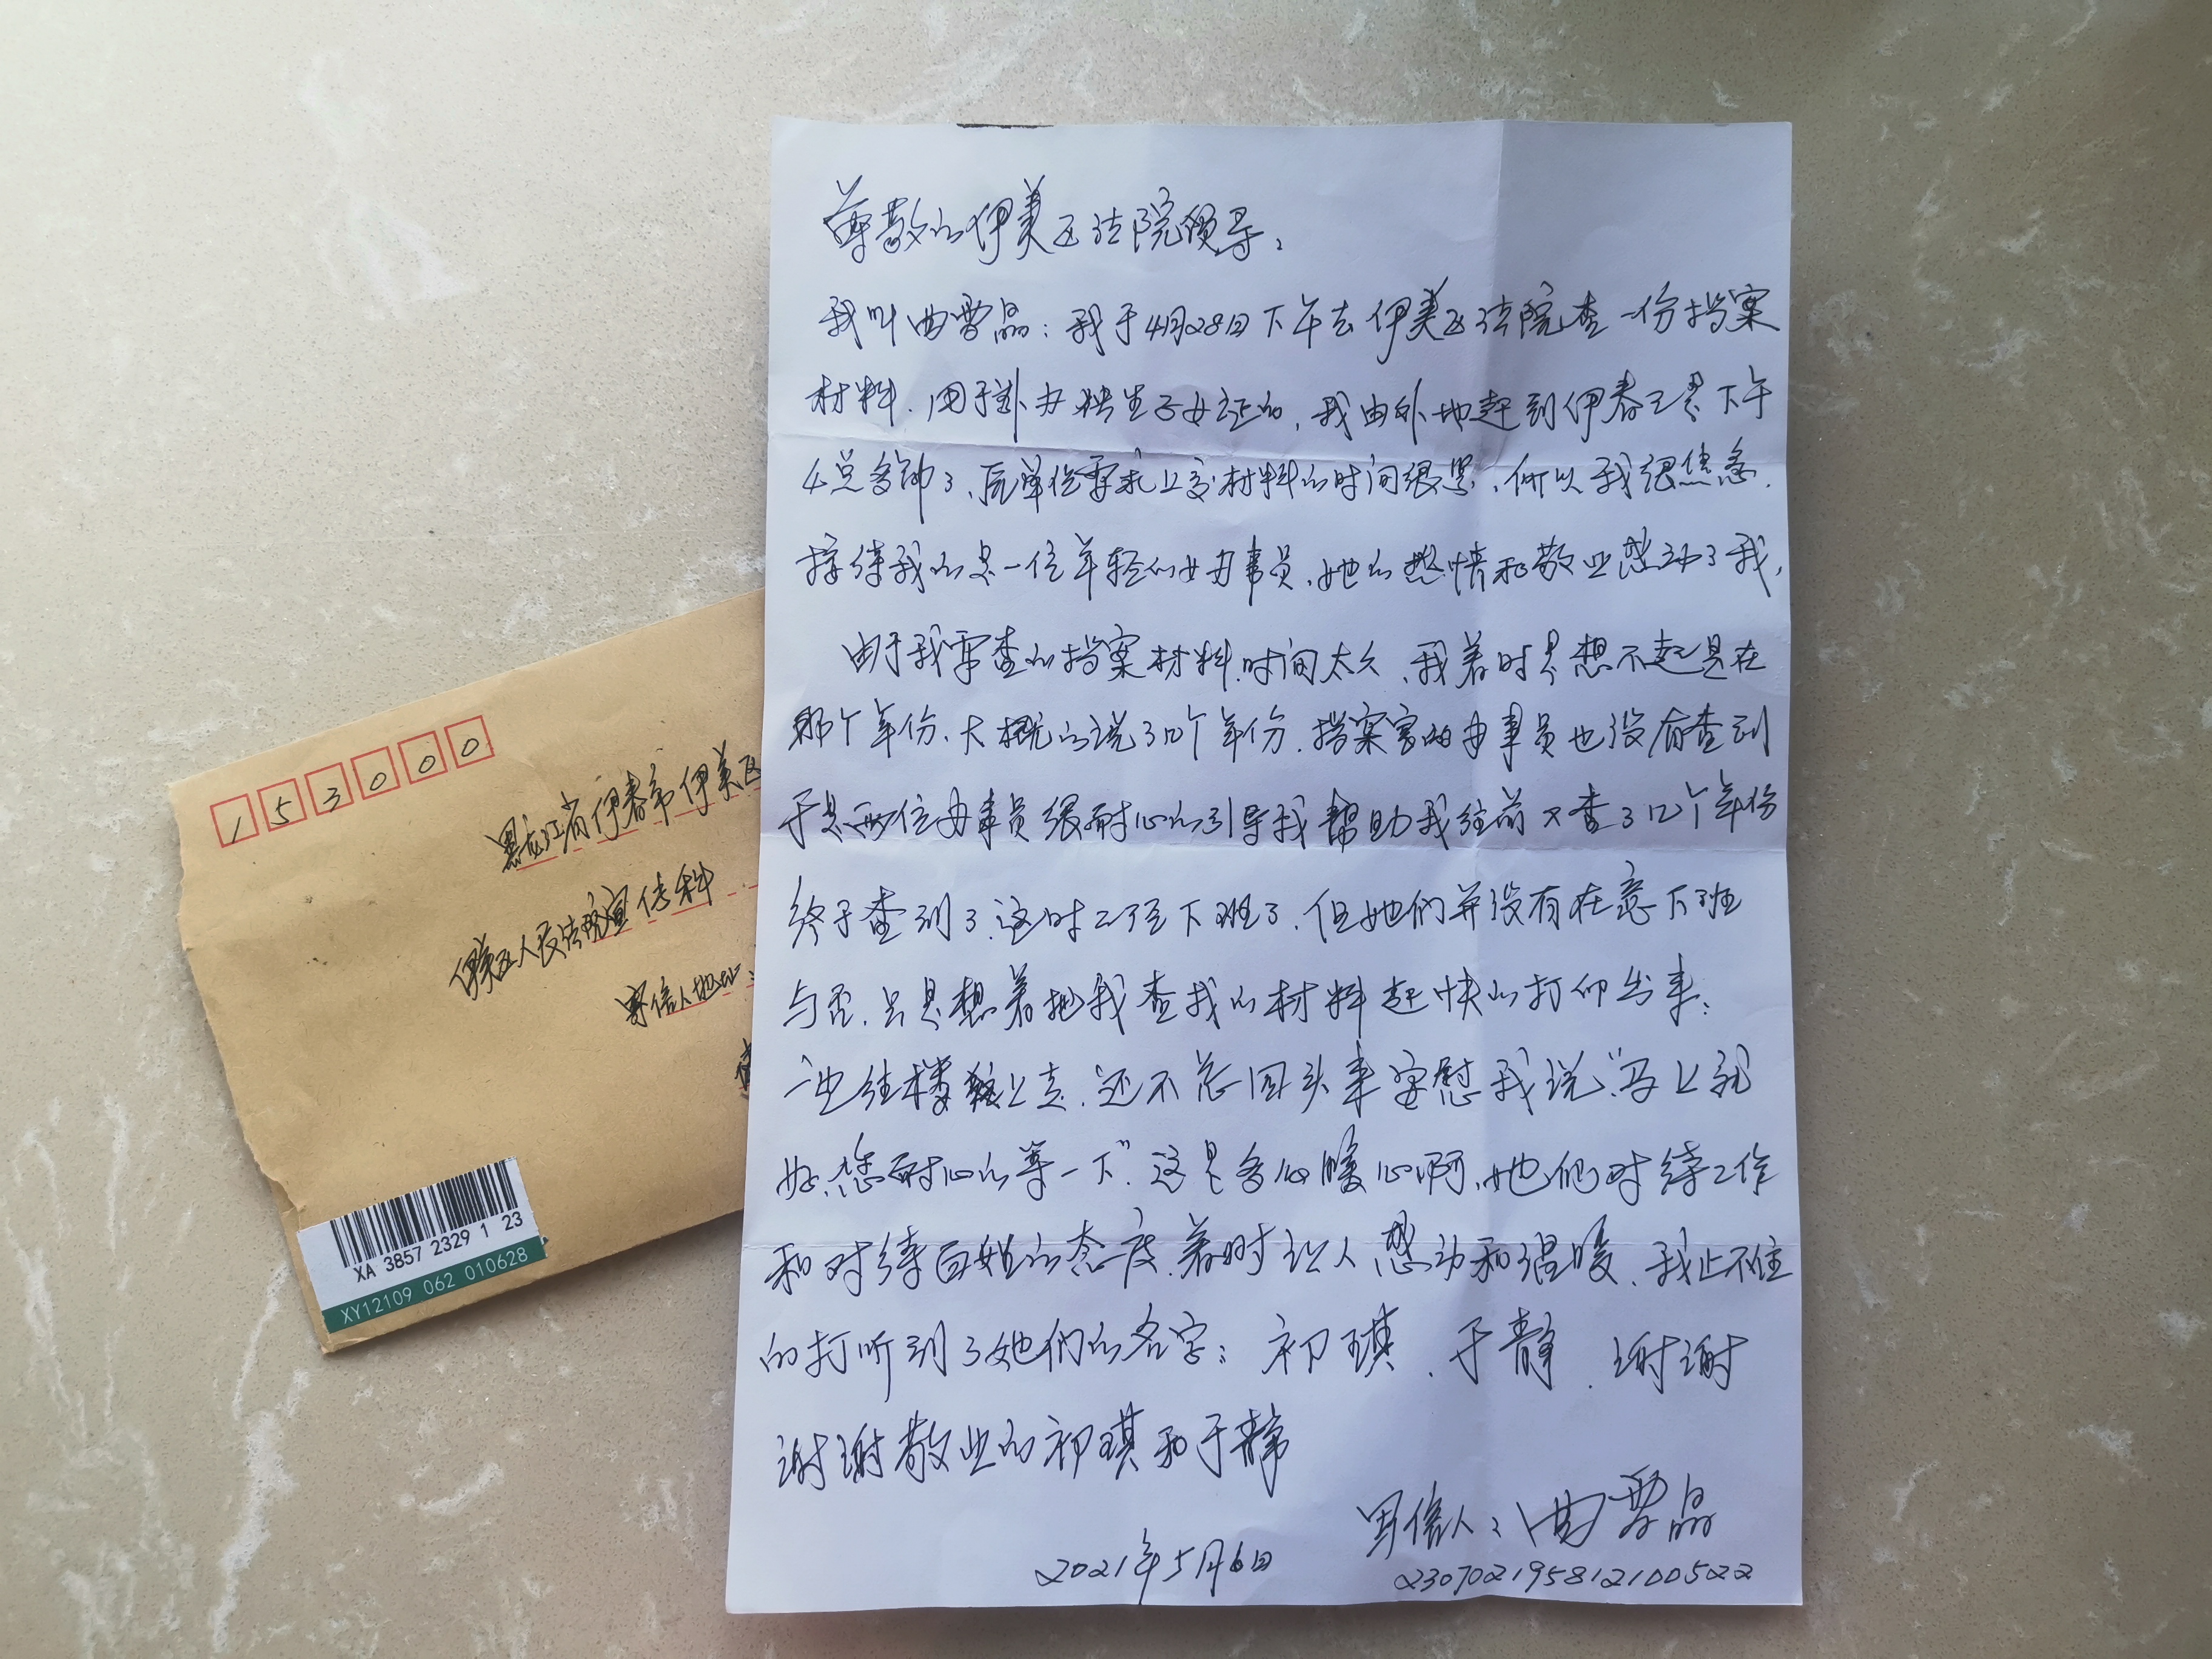 尊敬的伊美区法院领导：
我叫曲雪晶：我于4月28日下午去伊美区法院查一份档案
材料．用于补办独生子女证的，我由外地赶到伊春已是下午
4点多钟了、原单位要求上交材料的时间很紧、所以我很焦急．
接待我的是一位年轻的女办事员、她的热情和敬业感动了我，
由于我要查的档案材料．时间太久、我着时是想不起是在
那个年份、大概的说了几个年份．档案室的办事员也没有查到
于是两位办事员很耐心的引导我帮助我往前又查了几个年份
终于查到了．这时已经下班了．但她们并没有在意下班
与否．只是想着把我查找的材料赶快的打印出来；
一边往楼上走．还不忘回头来安慰我说“马上就
好、您耐心的等一下”．这是多么暖心啊、她们对待工作
和对待百姓的态度．着时让人感动和温暖、我止不住
的打听到了她们的名字：初琪、于静．谢谢
谢谢敬业的初琪和于静
写信人：曲雪晶
2021年5月6日
230702195812100522
153000
黑龙江省伊春市伊美区
伊美区人民法院宣传科
寄信人地址：
XA 3857 2329 1 23
XY12109 062 010628